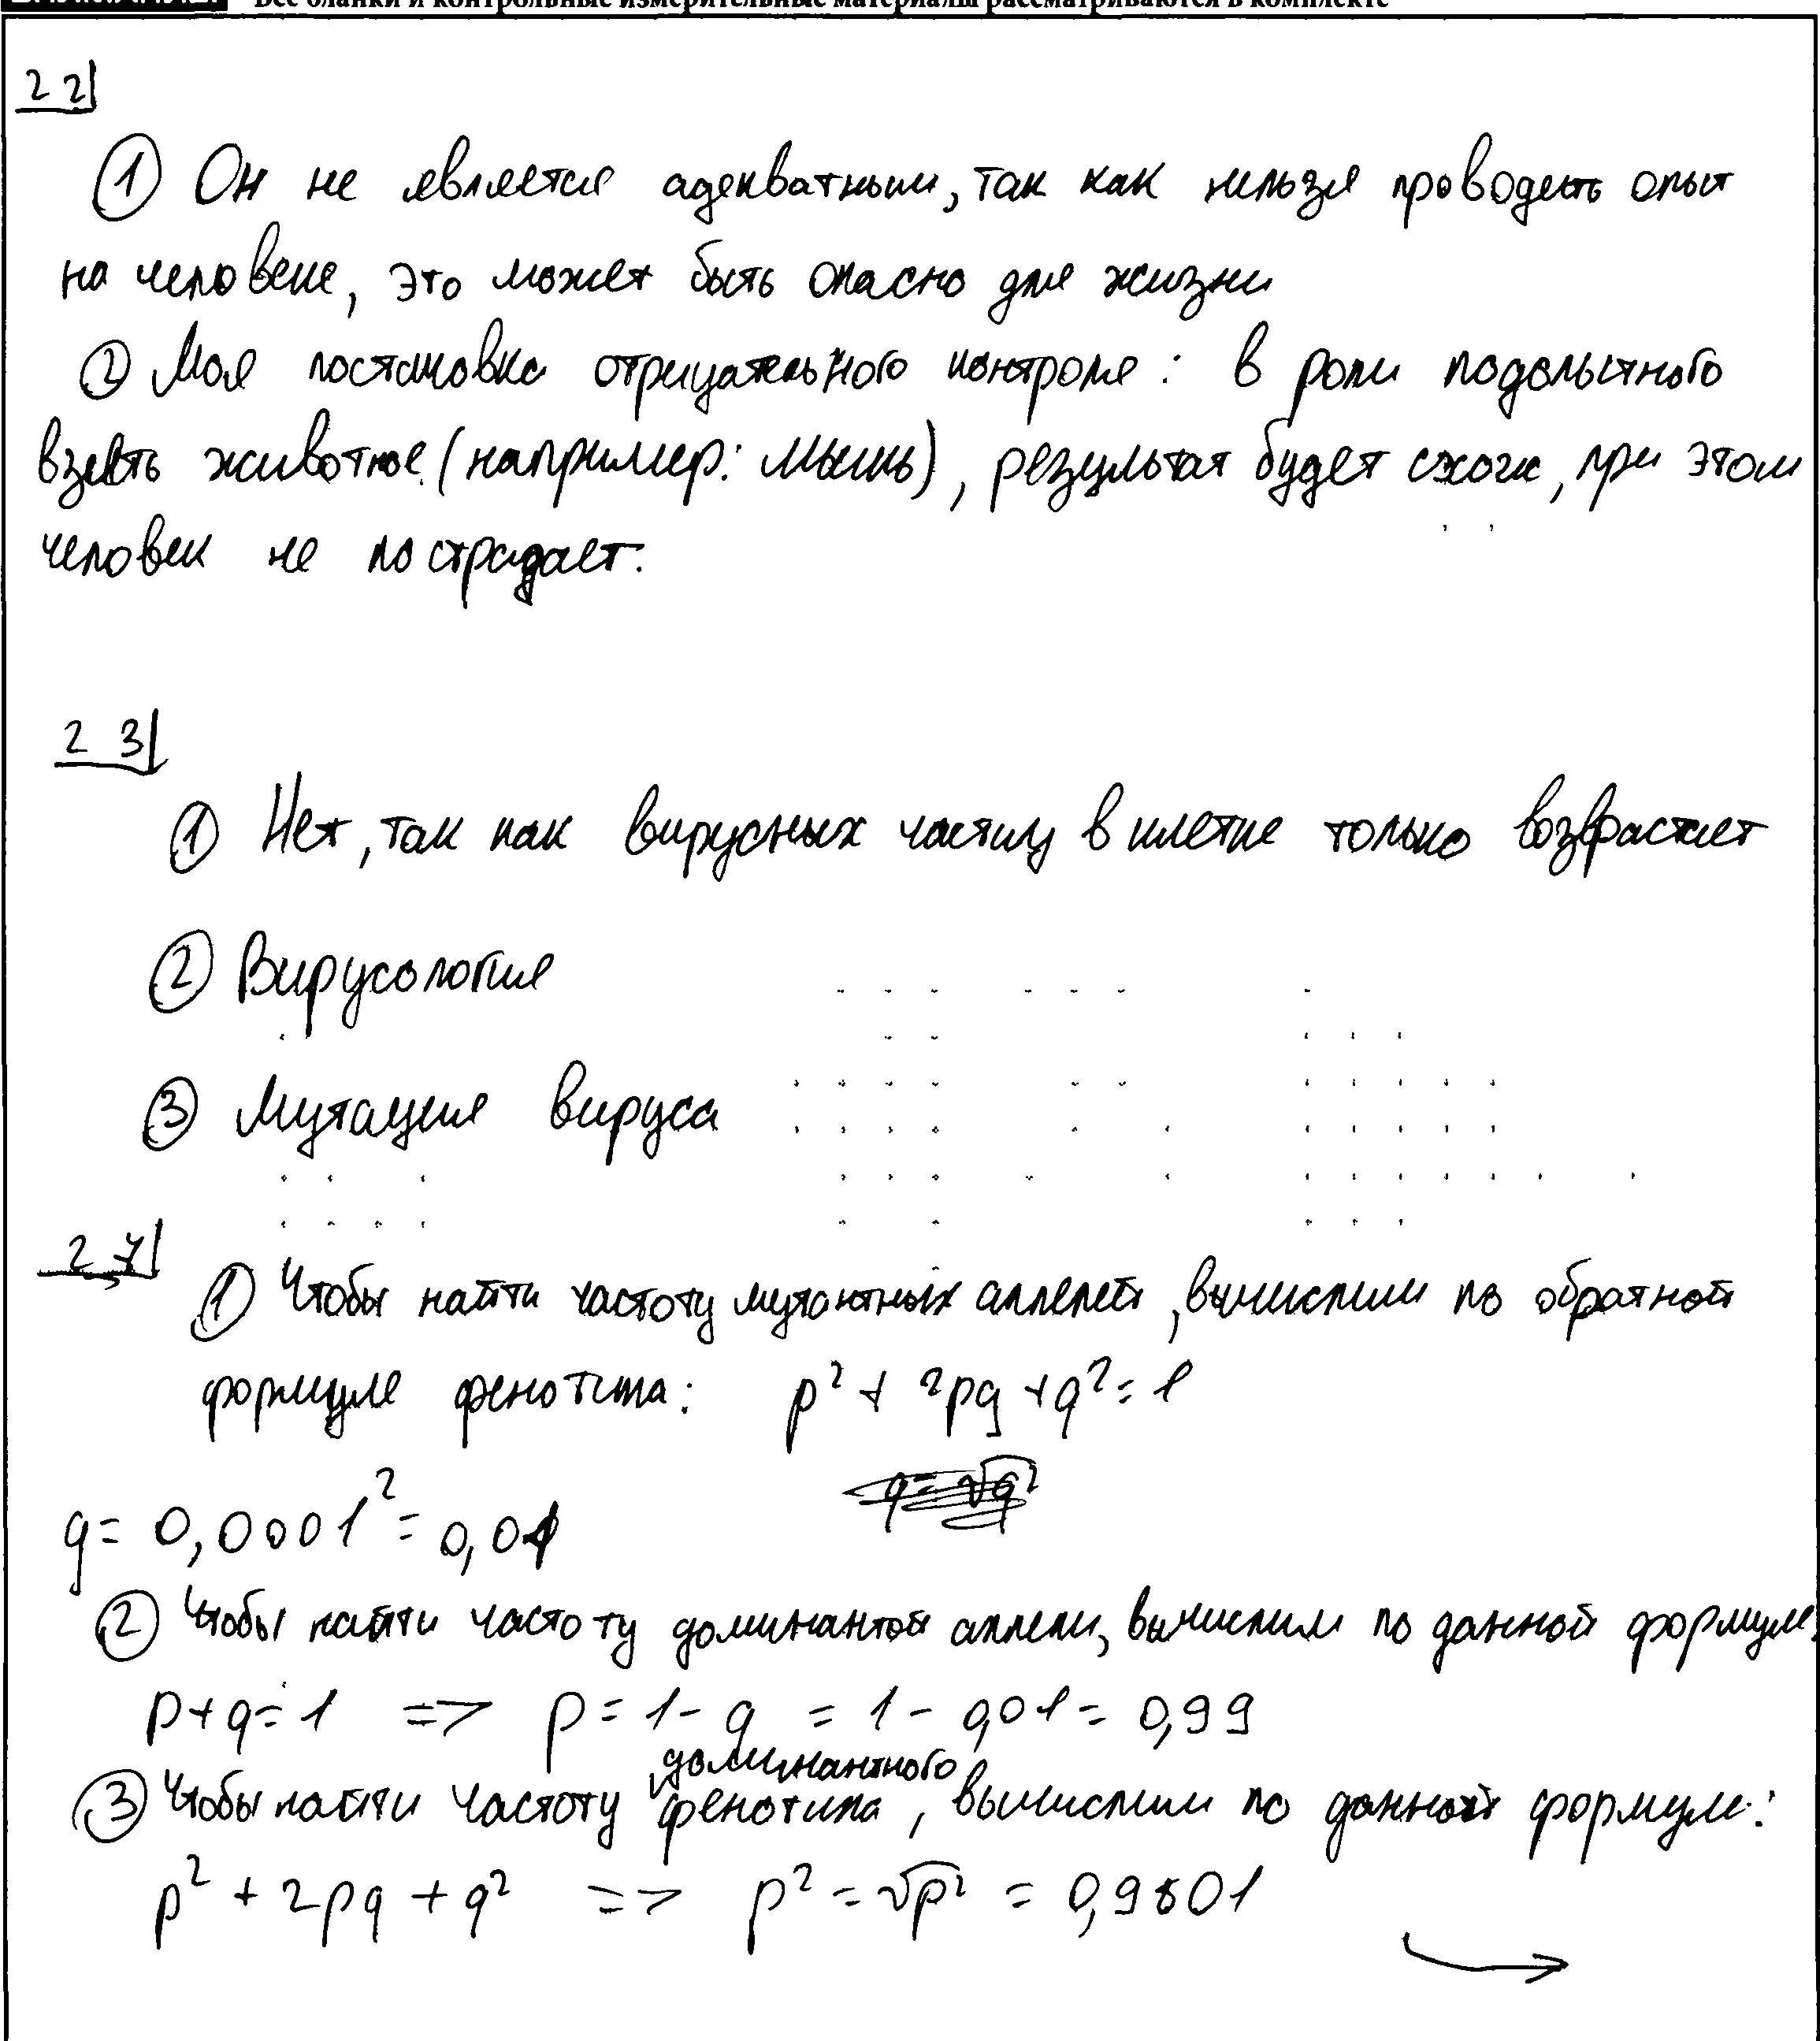 Все бланки и контрольные измерительные материалы рассматриваются в комплекте
22
① Он не является адекватным, так как нельзя проводить опыт
на человеке, это может быть опасно для жизни
② Моя постановка отрицательного контроля: в роли подопытного
взять животное (например: мышь), результат будет схож, при этом
человек не пострадает.
23
① Нет, так как вирусных частиц в клетке только возврастает
② Вирусология
③ Мутация вируса
27
① Чтобы найти частоту мутантных аллелей, вычислим по обратной
формуле фенотипа: p² + 2pq + q² = 1
q = √q²
q = 0,0001² = 0,01
② Чтобы найти частоту доминантой аллели, вычислим по данной формуле
p + q = 1 => p = 1 - q = 1 - 0,01 = 0,99
③ Чтобы найти частоту доминантного фенотипа, вычислим по данной формуле:
p² + 2pq + q² => p² = √p² = 0,9801